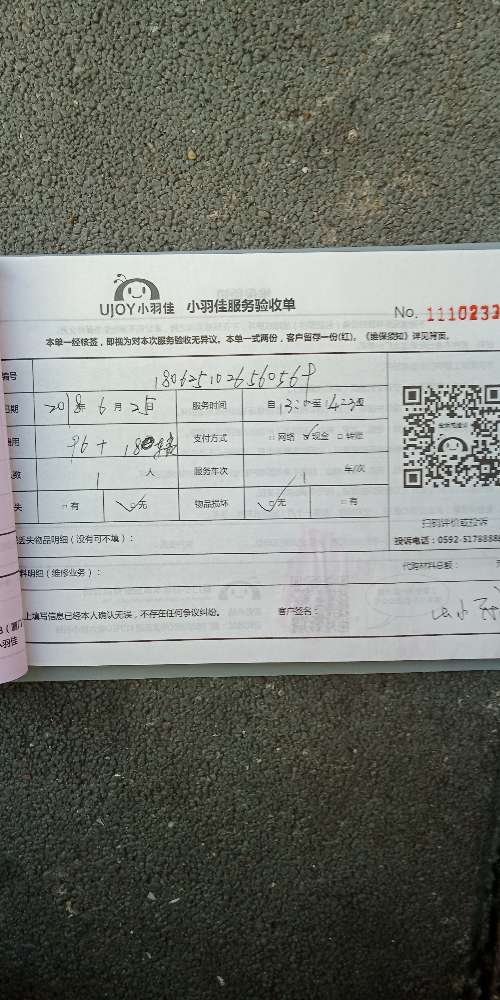 UJOY小羽佳 小羽佳服务验收单
No. 1110233
本单一经核签，即视为对本次服务验收无异议。本单一式两份，客户留存一份(红)。《维保须知》详见背面。
编号 180625102656056
日期 2018年 6月 25日 服务时间 自 至
费用 96+ 支付方式 □网络 ☑现金 □转账
数 1 人 服务车次 1 车/次
失 □有 ☑无 物品损坏 ☑无 □有
扫码评价或投诉
丢失物品明细（没有可不填）：
投诉电话：0592-5178888
料明细（维修业务）：
代购材料总额：
上填写信息已经本人确认无误，不存在任何争议纠纷。 客户签名：
小羽佳